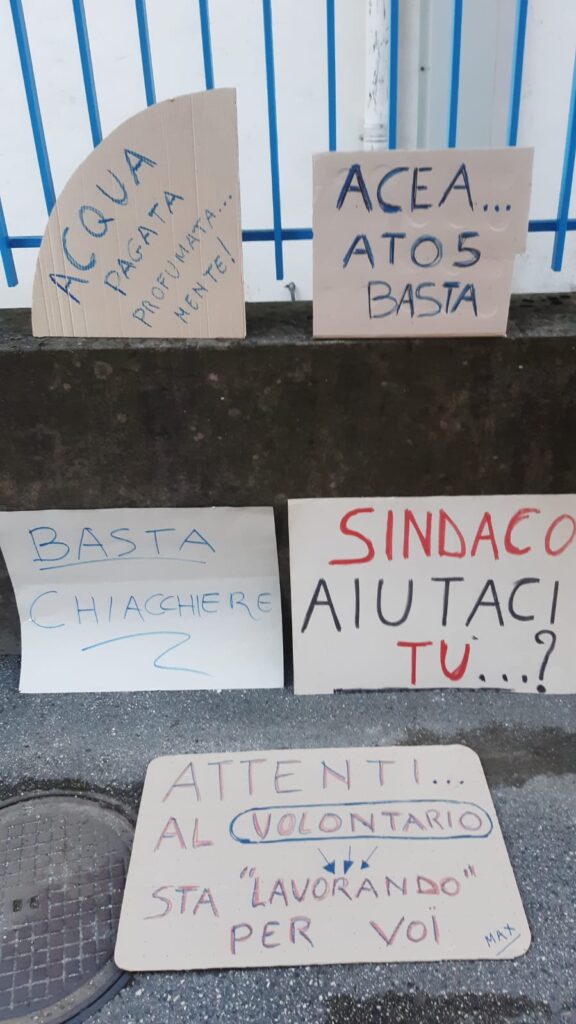 ACQUA
PAGATA
PROFUMATA...
MENTE!
ACEA...
ATO5
BASTA
BASTA
CHIACCHIERE
SINDACO
AIUTACI
TU...?
ATTENTI...
AL VOLONTARIO
STA "LAVORANDO"
PER VOI
MAX